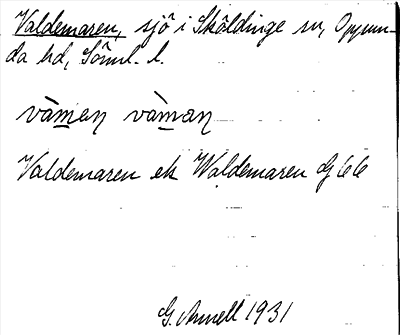 Valdemaren, sjö i Sköldinge sn, Oppun-
da hd, Söml. l.
vàmaŋ vàman
Valdemaren ek Waldemaren Gf 66
G. Annell 1931